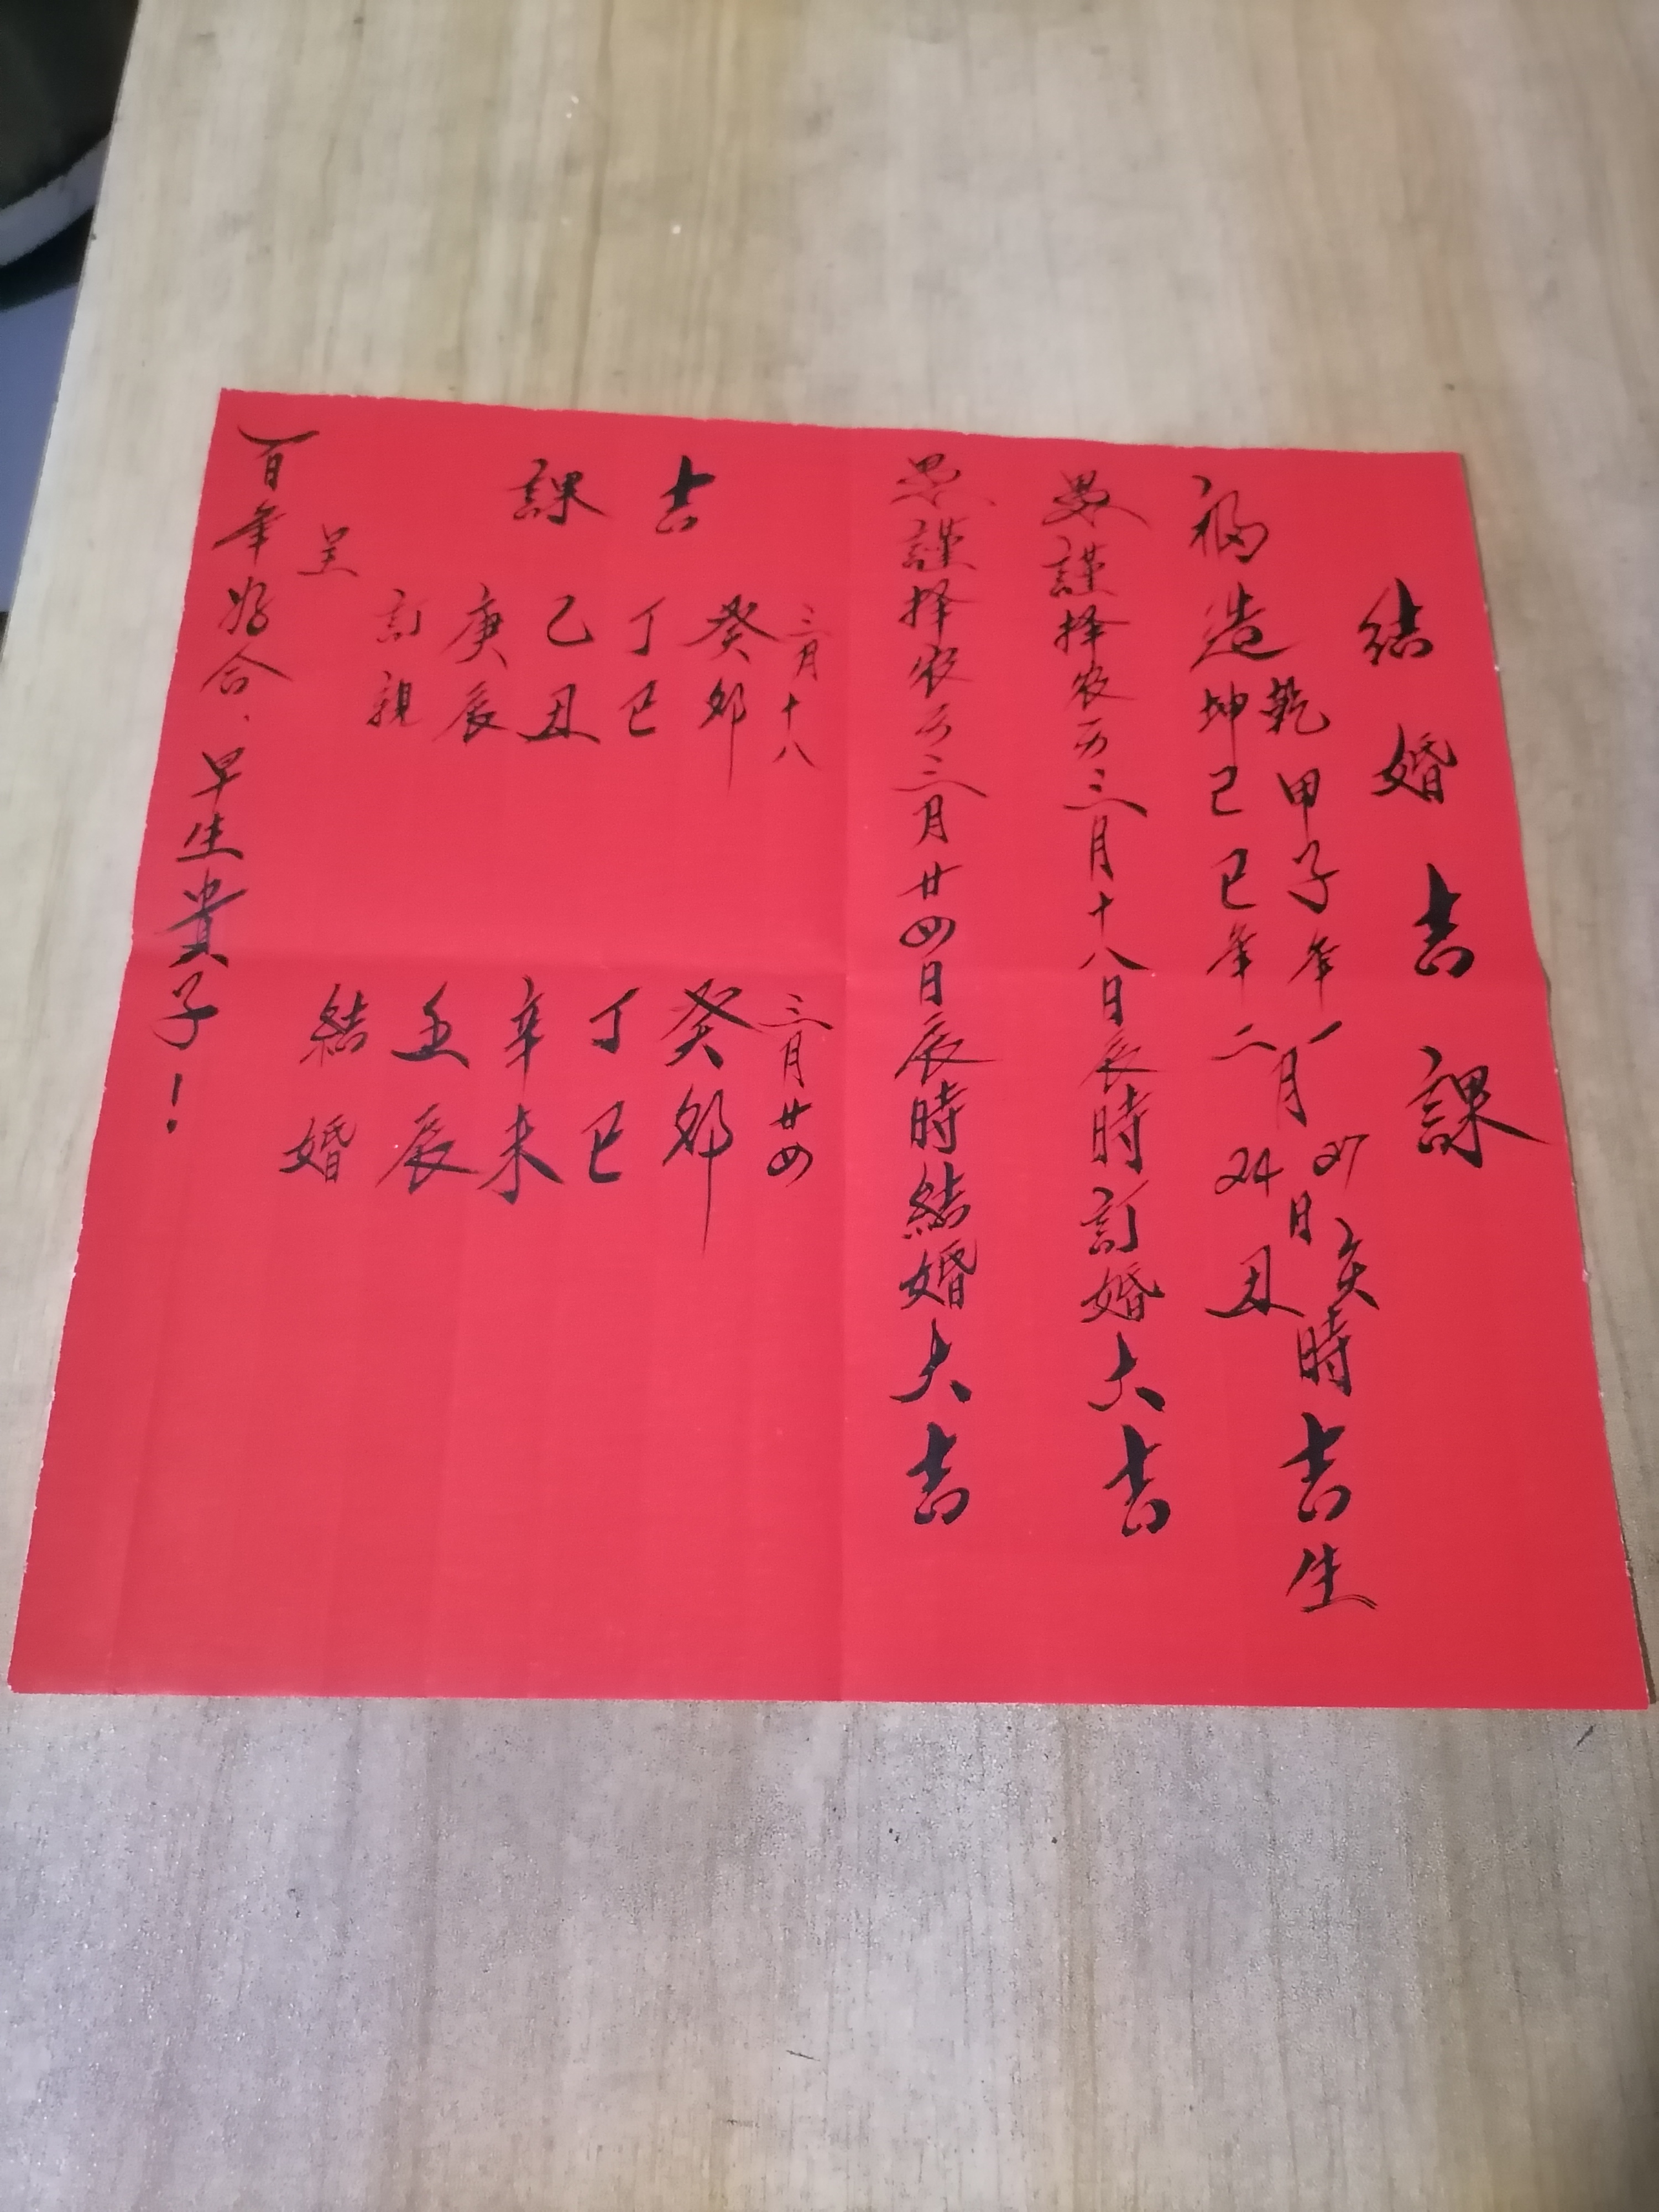 結婚吉課
福造乾甲子年一月27日亥時吉生
坤己巳年二月24日丑時吉生
愚謹择农历三月十八日辰時訂婚大吉
愚謹择农历三月廿四日辰時結婚大吉
吉課
三月十八
癸卯
丁巳
乙丑
庚辰
訂親
三月廿四
癸卯
丁巳
辛未
壬辰
結婚
呈
百年好合、早生貴子！